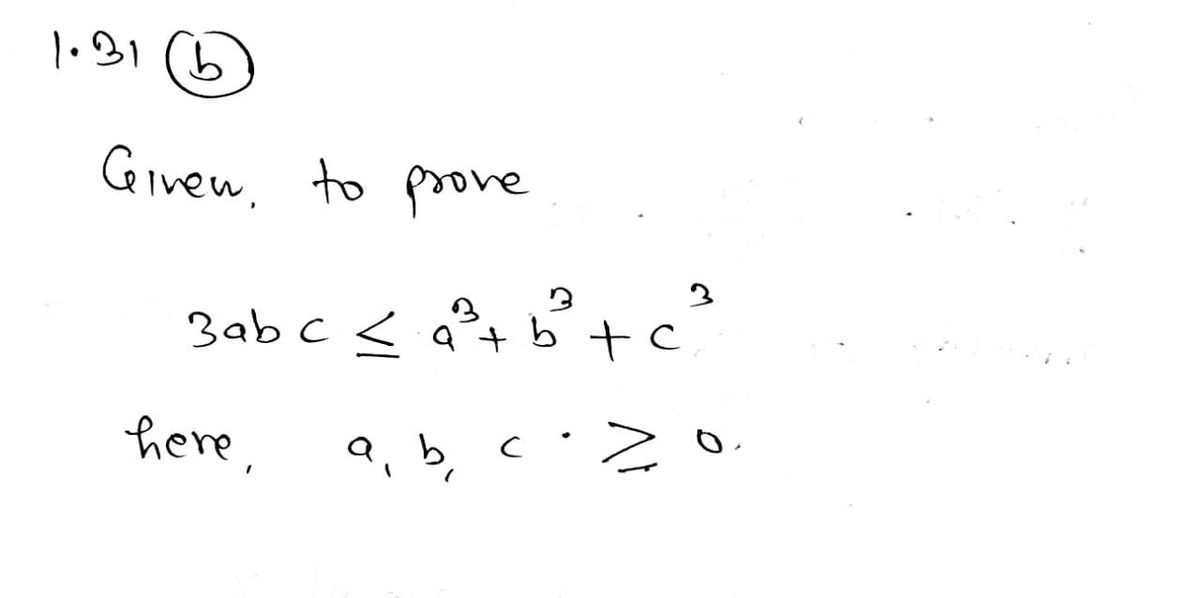 1.31 (b)
Given, to prove
3abc ≤ a³ + b³ + c³
here, a, b, c ≥ 0.